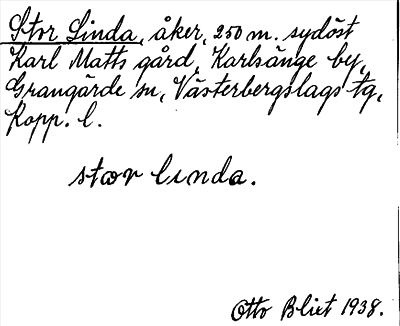 Stor Linda, åker, 250 m. sydöst
Karl Matts gård, Karlsänge by,
Grangärde sn, Västerbergslags tg,
Kopp. l.
stor linda.
Otto Blixt 1938.